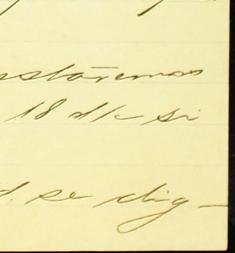 staremos
18 d/c si
d. se dig-